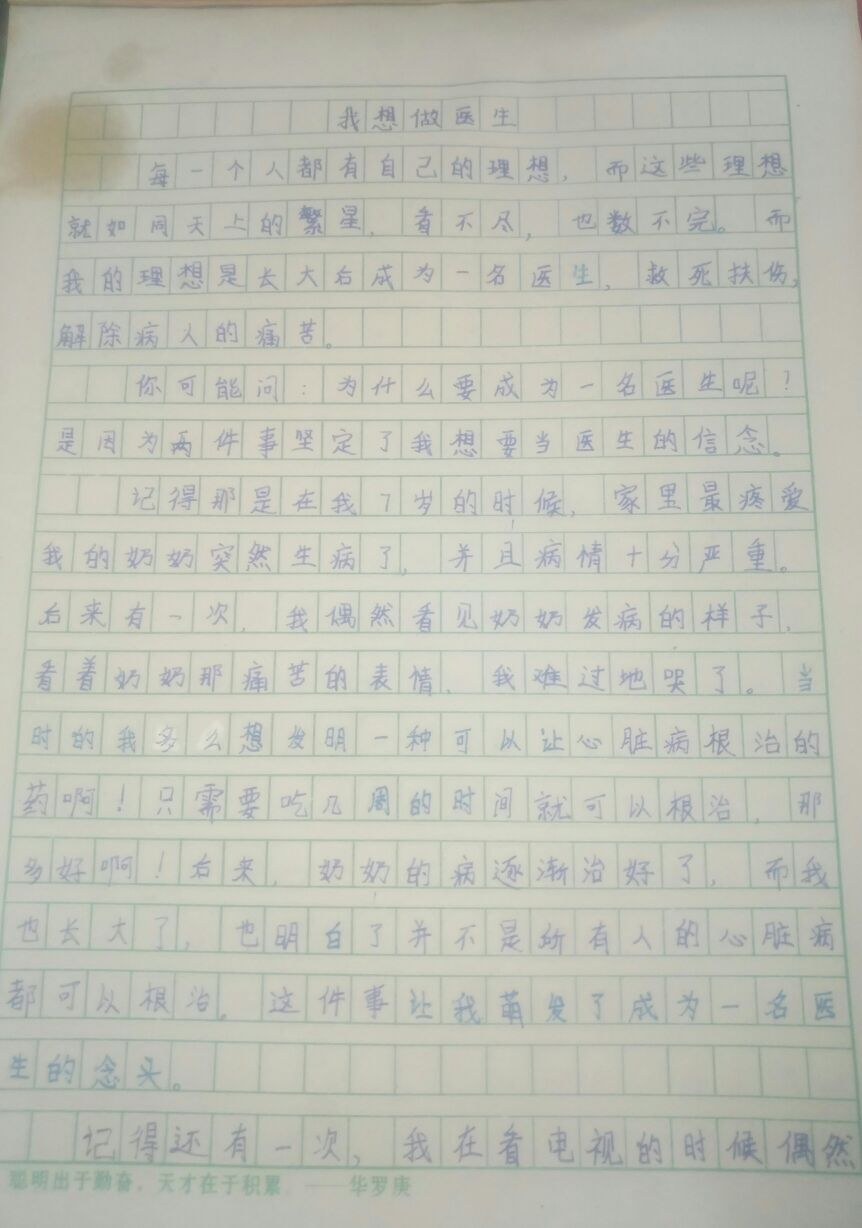 我想做医生
每一个人都有自己的理想，而这些理想
就如同天上的繁星，看不尽，也数不完。而
我的理想是长大后成为一名医生，救死扶伤，
解除病人的痛苦。
你可能问：为什么要成为一名医生呢？
是因为两件事坚定了我想要当医生的信念。
记得那是在我7岁的时候，家里最疼爱
我的奶奶突然生病了，并且病情十分严重。
后来有一次，我偶然看见奶奶发病的样子，
看着奶奶那痛苦的表情，我难过地哭了。当
时的我多么想发明一种可以让心脏病根治的
药啊！只需要吃几周的时间就可以根治，那
多好啊！后来，奶奶的病逐渐治好了，而我
也长大了，也明白了并不是所有人的心脏病
都可以根治。这件事让我萌发了成为一名医
生的念头。
记得还有一次，我在看电视的时候偶然
聪明出于勤奋，天才在于积累 ——华罗庚